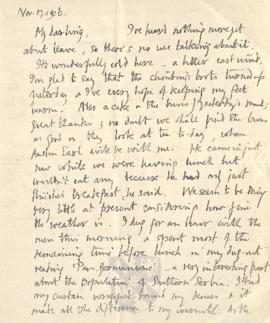 Nov. 17. 1916.
My darling, I've heard nothing more yet
about leave, so there's no use talking about it.
It's wonderfully cold here – a bitter east wind.
I'm glad to say that the climbing boots turned up
yesterday & I've every hope of keeping my feet
warm. Also a cake & the buns (yesterday's mud;
Great thanks; no doubt we shall find the buns
as good as they look at tea to-day, when
Austin Earl will be with me. He came in just
now while we were having lunch but
wouldn't eat any because he had only just
finished breakfast, he said. We seem to be doing
very little at present considering how fine
the weather is. I dug for an hour with the
men this morning, & spent most of the
remaining time before lunch in my dug-out
reading "Pan-Germanism" – a very interesting part
about the population of Southern Serbia. I had
my curtain wrapped round my knees & it
made all the difference to my warmth. As the